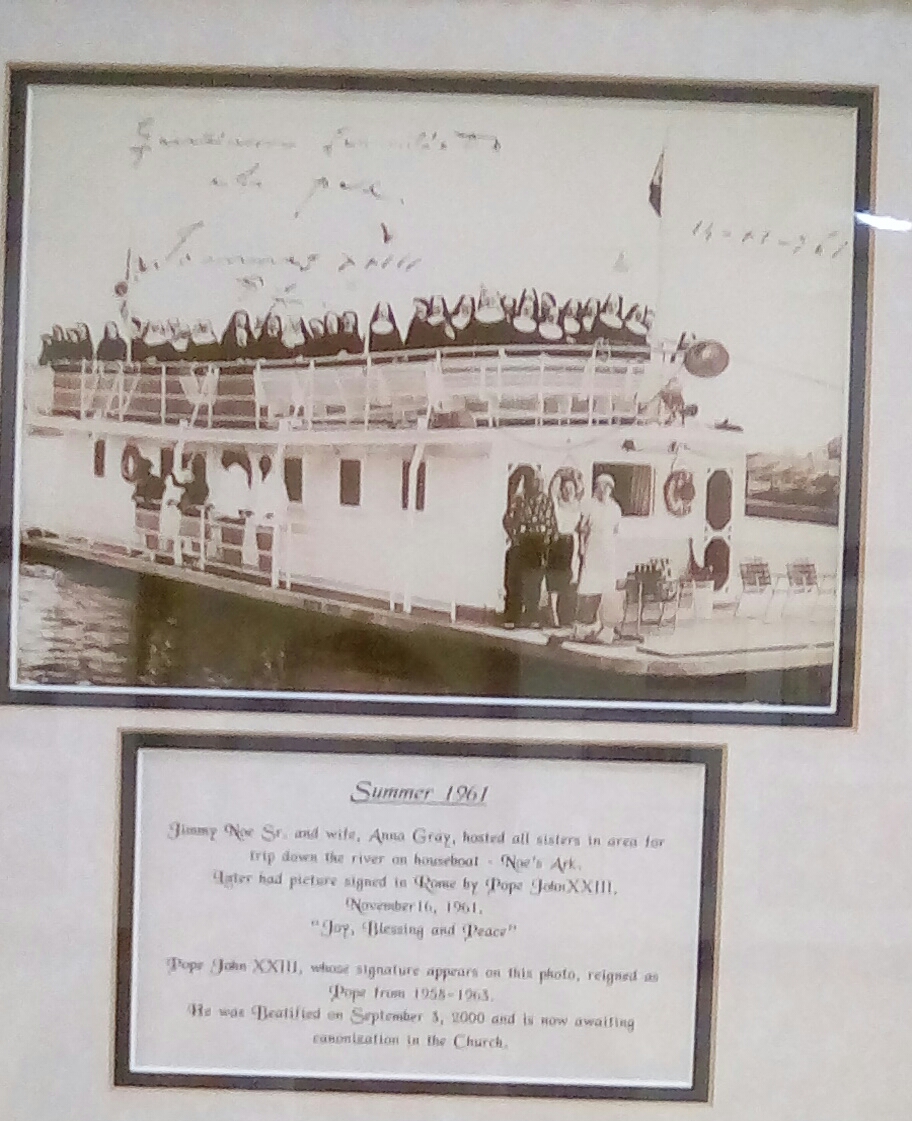 Joannes XXIII
Summer 1961
Jimmy Noe Sr. and wife, Anna Gray, hosted all sisters in area for
trip down the river on houseboat - Noe's Ark.
Later had picture signed in Rome by Pope JohnXXIII,
November 16, 1961.
"Joy, Blessing and Peace"
Pope John XXIII, whose signature appears on this photo, reigned as
Pope from 1958-1963.
He was Beatified on September 3, 2000 and is now awaiting
canonization in the Church.